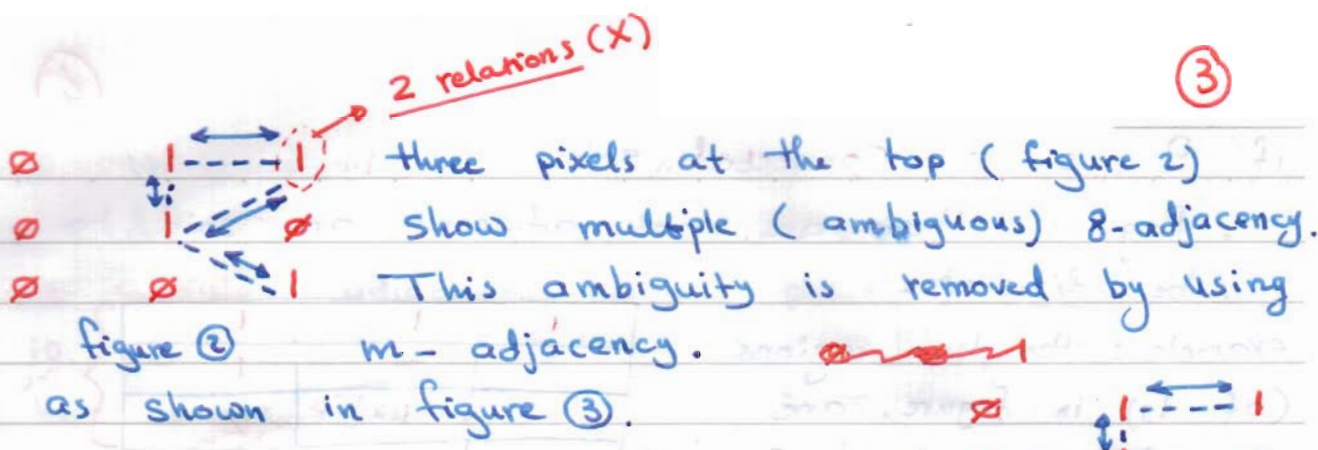 2 relations (X)
3
ø 1 1 three pixels at the top (figure 2)
ø 1 ø show multiple (ambiguous) 8-adjacency.
ø ø 1 This ambiguity is removed by using
figure ② m- adjacency.
as shown in figure ③. ø 1 1